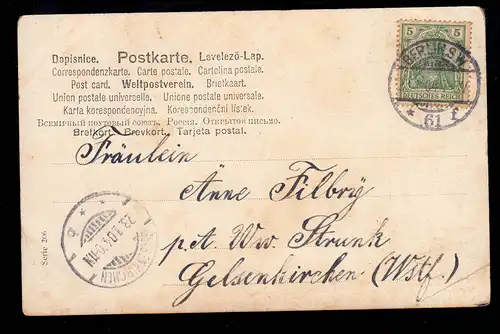 Dopisnice. Postkarte. Levelező-Lap.
Correspondenzkarte. Carte postale. Cartolina postale.
Post card. Weltpostverein. Briefkaart.
Union postale universelle. Unione postale universale.
Karta korespondencyjna. Korespondenční lístek.
Всемірный почтовый союзъ. Россія. Открытое письмо.
Brefkort. Brevkort. Tarjeta postal.
5 5
DEUTSCHES REICH
BERLIN SW
61 f
Fräulein
Änne Filbry
p. A. Ww. Strunk
Gelsenkirchen (Wstf.)
Serie 206